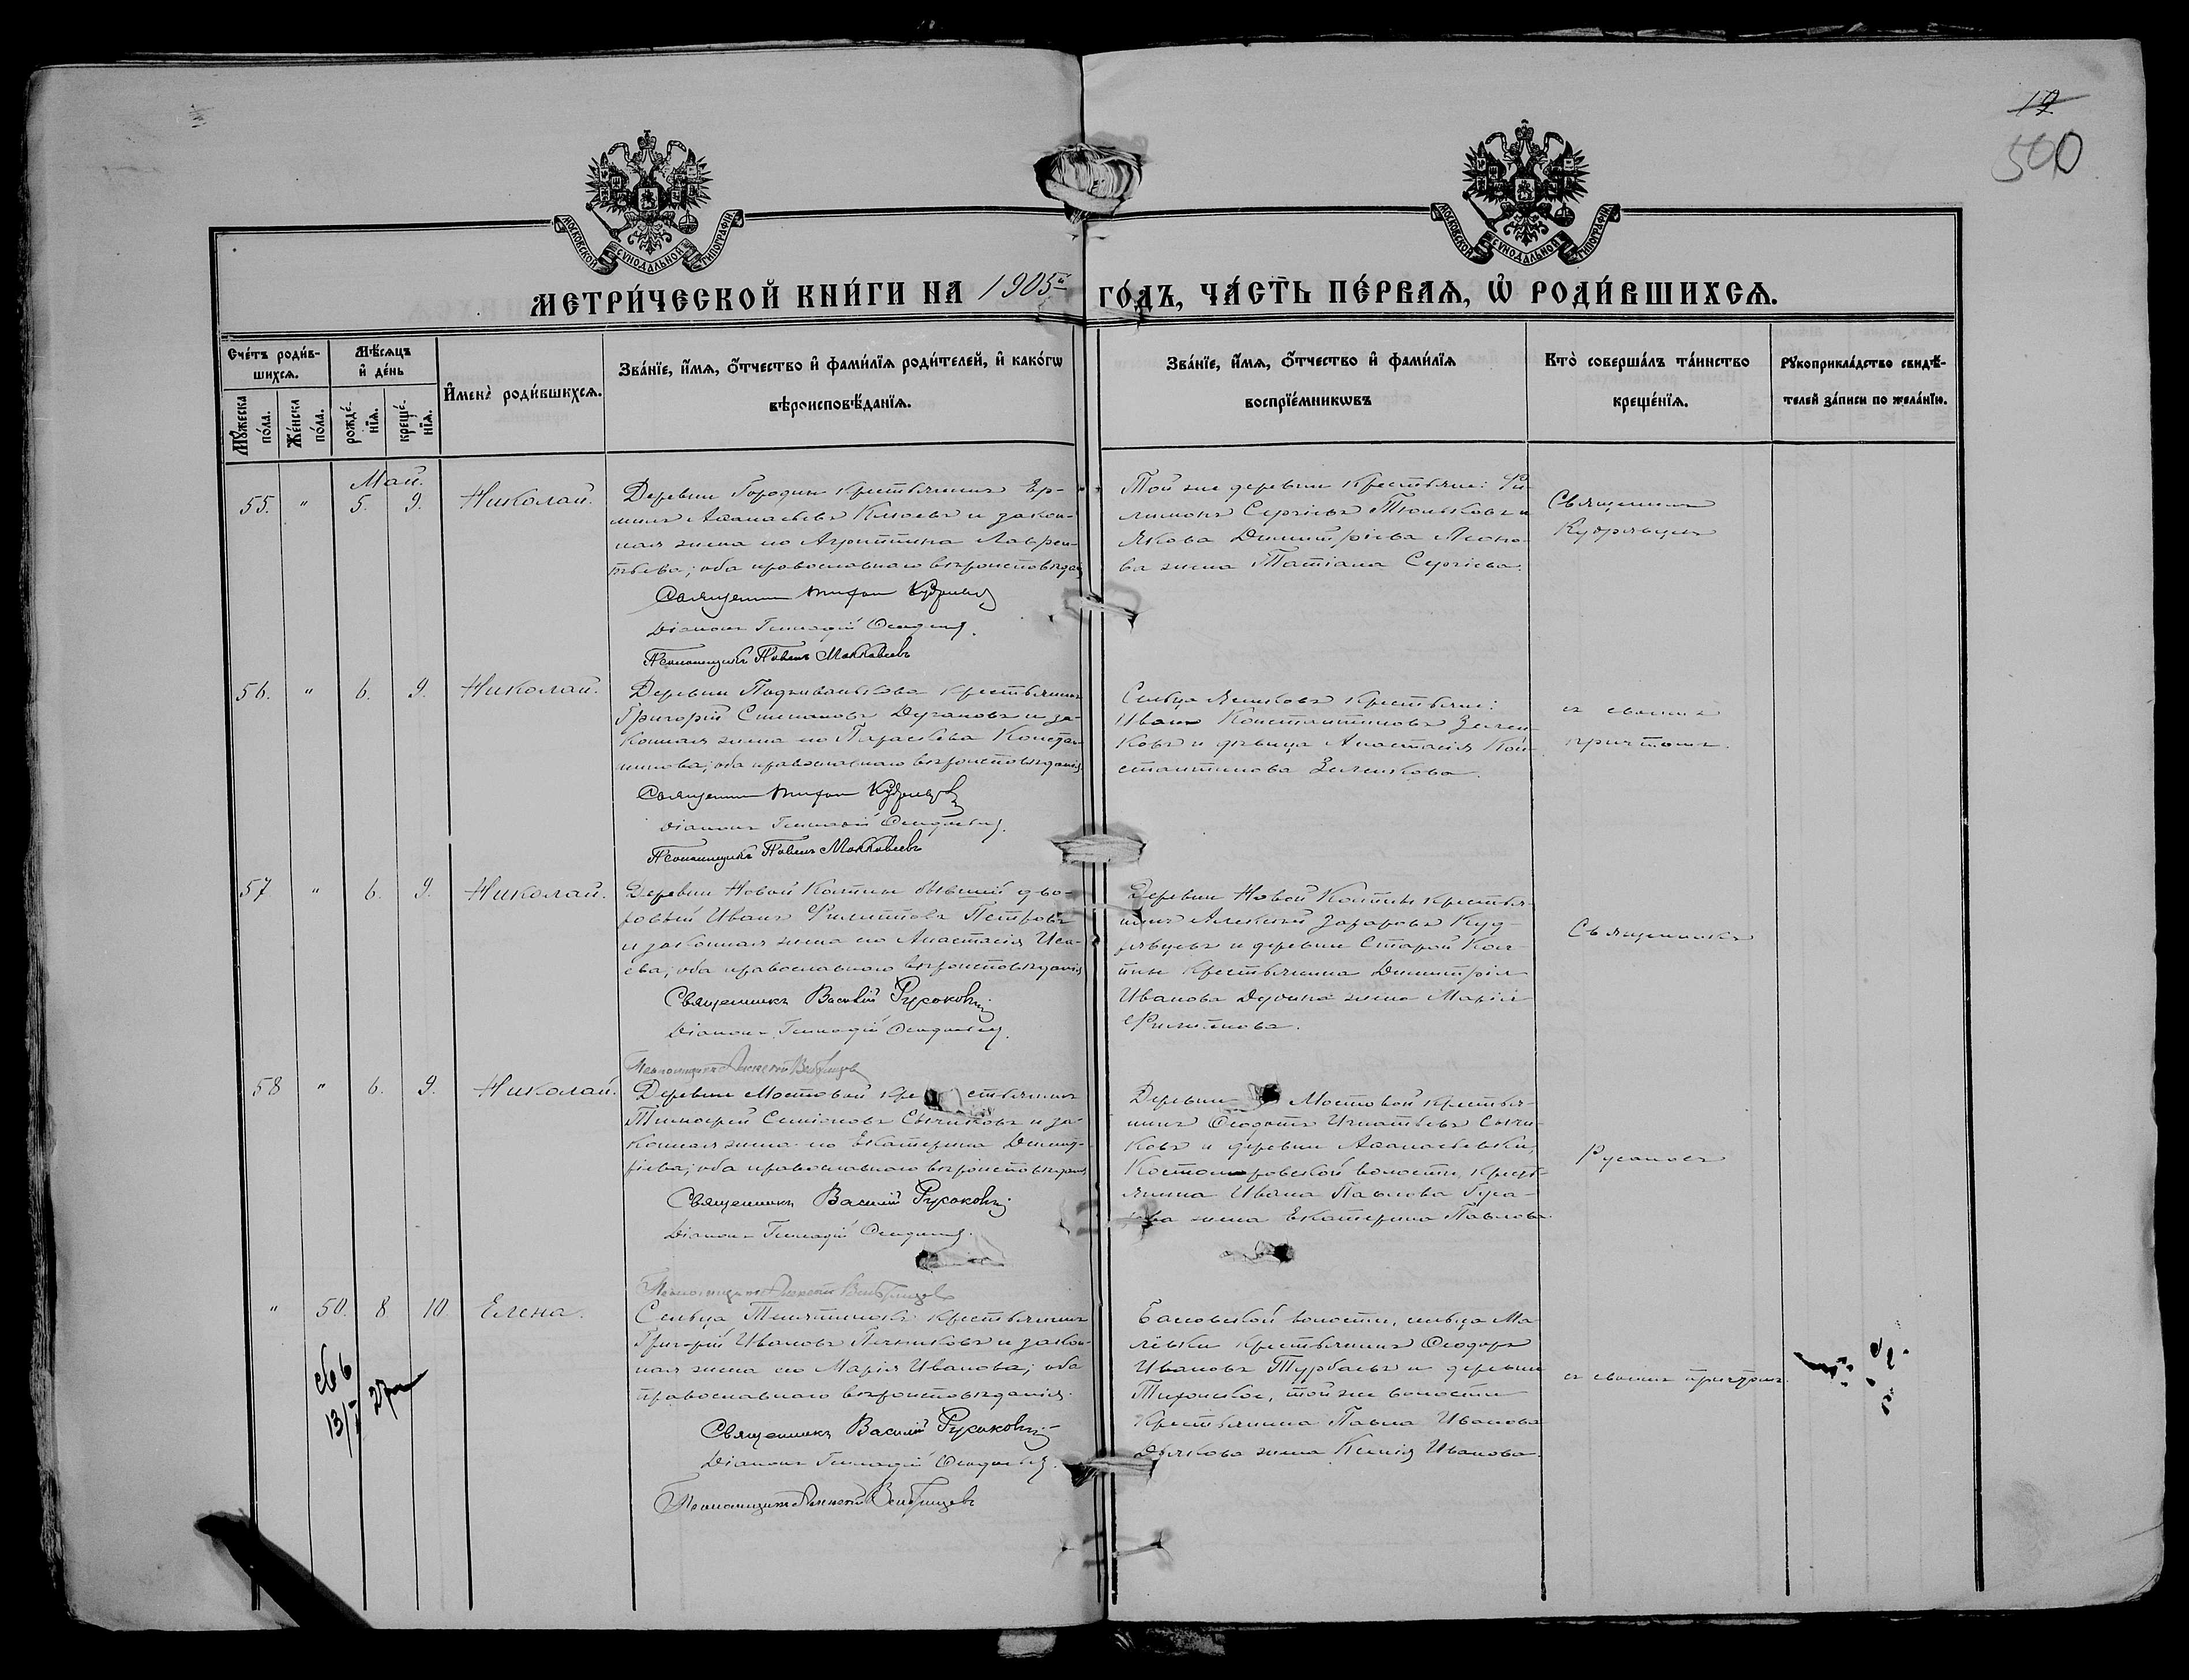 19
500
МОСКОВСКОЙ СѴНОДАЛЬНОЙ ТИПОГРАФІИ
МОСКОВСКОЙ СѴНОДАЛЬНОЙ ТИПОГРАФІИ
МЕТРИ́ЧЕСКОЙ КНИ́ГИ НА 1905й го́дъ, ча́сть пе́рвая, ѡ҆ роди́вшихся.
Сче́тъ роди́в-
шихся.
Мꙋ́жеска по́ла.
Же́нска по́ла.
Мѣ́сяцъ
и҆ де́нь
рожде́-
нїя.
креще́-
нїя.
И҆мена̀ роди́вшихся.
Зва́нїе, и҆́мя, ѻ҆́тчество и҆ фами́лїя роди́телей, и҆ како́гѡ
вѣроисповѣ́данїя.
Зва́нїе, и҆́мя, ѻ҆́тчество и҆ фами́лїя
воспрїе́мникѡвъ
Кто̀ соверша́лъ та́инство
креще́нїя.
Рꙋкоприкла́дство свидѣ́-
телей за́писи по жела́нїю.
Май.
55. " 5. 9. Николай.
Деревни Городни крестьянинъ Ер-
милъ Аѳанасьевъ Клюевъ и закон-
ная жена его Агриппина Лаврен-
тьева; оба православнаго вѣроисповѣдан
Священникъ Кудрявцевъ
Діаконъ Геннадій
Псаломщикъ Павелъ Маккавеевъ
Той же деревни крестьяне: Фи-
лимонъ Сергіевъ Тюльковъ и
Якова Димитріева Леоно-
ва жена Татіана Сергіева.
Священникъ
Кудрявцевъ
56. " 6. 9. Николай.
Деревни крестьянинъ
Григорій Степановъ и за-
конная жена его Параскева Констан
тинова; оба православнаго вѣроисповѣданія
Священникъ Кудрявцевъ
Діаконъ Геннадій
Псаломщикъ Павелъ Маккавеевъ
Сельца крестьяне:
Иванъ Константиновъ Зелен-
ковъ и дѣвица Анастасія Кон-
стантинова Зеленкова.
съ своимъ
причтомъ.
57 " 6. 9. Николай.
Деревни Новой Колтны бывшій дво-
ровый Иванъ Филипповъ Петровъ
и законная жена его Анастасія Иса-
ева; оба православнаго вѣроисповѣданія
Священникъ Василій Русаковъ
Діаконъ Геннадій
Псаломщикъ Алексей
Деревни Новой Колтны крестья-
нинъ Алексѣй Захаровъ Куд-
рявцевъ и деревни Старой Кол-
тны крестьянина Димитрія
Иванова жена Марія
Филиппова.
Священникъ
58 " 6. 9. Николай.
Деревни Мостовой крестьянинъ
Тимоѳей Семіоновъ Сычиковъ и за-
конная жена его Екатерина Димит-
ріева; оба православнаго вѣроисповѣдан
Священникъ Василій Русаковъ
Діаконъ Геннадій
Псаломщикъ Алексей
Деревни Мостовой крестья-
нинъ Ѳеодотъ Игнатьевъ Сычи-
ковъ и деревни Аѳанасьевки,
Костомаровской волости, кресть-
янина Ивана Павлова Гуса-
кова жена Екатерина Павлова.
Русаковъ
" 50. 8 10. Елена.
Сельца крестьянинъ
Григорій Ивановъ и закон-
ная жена его Марія Иванова; оба
православнаго вѣроисповѣданія.
Священникъ Василій Русаковъ
Діаконъ Геннадій
Псаломщикъ Алексей
волости, сельца Ма-
лёвки крестьянинъ Ѳеодоръ
Ивановъ Турбаевъ и деревни
той же волости
крестьянина Павла Иванова
Дьякова жена Ксенія Иванова.
съ своимъ причтомъ.